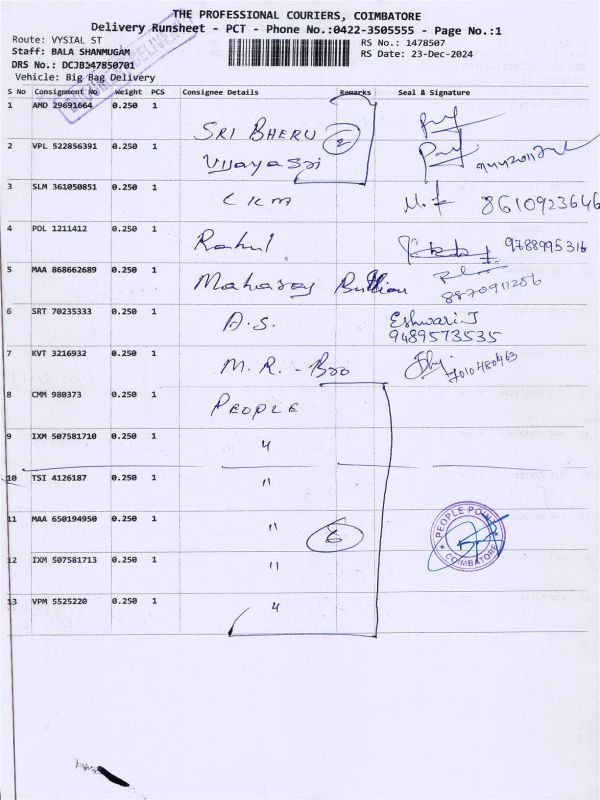 THE PROFESSIONAL COURIERS, COIMBATORE
Delivery Runsheet - PCT - Phone No.:0422-3505555 - Page No.:1
Route: VYSIAL ST
RS No.: 1478507
Staff: BALA SHANMUGAM
RS Date: 23-Dec-2024
DRS No.: DCJB147850701
Vehicle: Big Bag Delivery
S No Consignment No Weight PCS Consignee Details Remarks Seal & Signature
1 AMD 29691664 0.250 1 SRI BHERU 2
2 VPL 522856391 0.250 1 Vijayasri
3 SLM 361050851 0.250 1 CKM 8610923646
4 POL 1211412 0.250 1 Rahul 9788995316
5 MAA 868662689 0.250 1 Maharaj Bullion 8870911206
6 SRT 70235333 0.250 1 A.S. Eshwari.J
9489573535
7 KVT 3216932 0.250 1 M.R. - Bro 7010480463
8 CMM 980373 0.250 1 PEOPLE
9 IXM 507581710 0.250 1 "
10 TSI 4126187 0.250 1 "
11 MAA 650194950 0.250 1 " 6
PEOPLE POINT
COIMBATORE
12 IXM 507581713 0.250 1 "
13 VPM 5525220 0.250 1 "